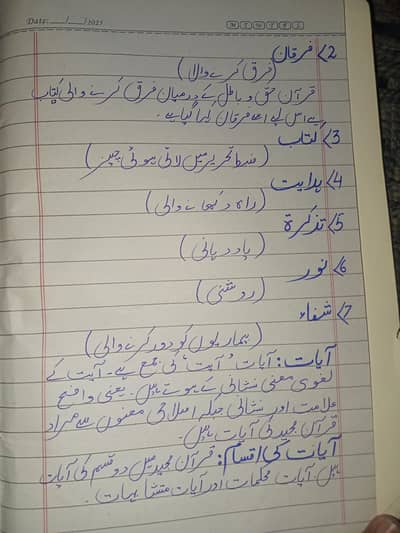 Date: __/__/2025 M T W T F S
2> فرقان
(فرق کرنے والا)
قرآن حق و باطل کے درمیان فرق کرنے والی کتاب
ہے اس لیے اسے فرقان کہا گیا ہے۔
3> کتاب
(ضبط تحریر میں لائی ہوئی چیز)
4> ہدایت
(راہ دکھانے والی)
5> تذکرۃ
(یاد دہانی)
6> نور
(روشنی)
7> شفاء
(بیماریوں کو دور کرنے والی)
آیات: آیات "آیت" کی جمع ہے۔ آیت کے
لغوی معنی نشانی کے ہوتے ہیں۔ یعنی واضح
علامت اور نشانی جبکہ اصلاحی معنوں سے مراد
قرآن مجید کی آیات ہیں۔
آیات کی اقسام: قرآن مجید میں دو قسم کی آیات
ہیں۔ آیات محکمات اور آیات متشابہات۔